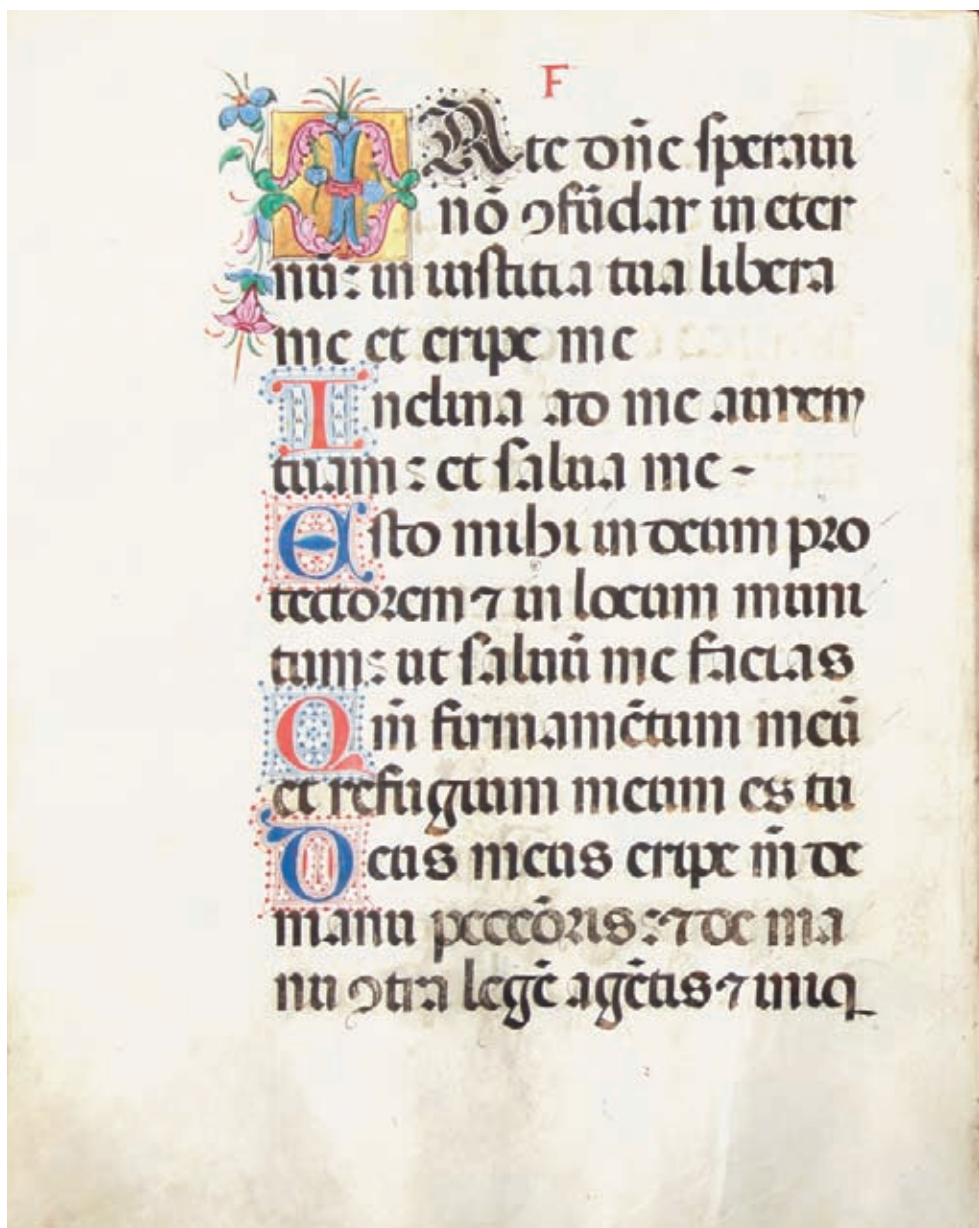 F
IN te dñe speraui
nō ꝯfūdar in eter
nū: in iustitia tua libera
me et eripe me
Inclina ad me aurem
tuam: et salua me-
Esto mihi in deum pro
tectorem ⁊ in locum muni
tum: ut saluū me facias
Qm̄ firmamētum meū
et refugium meum es tu
Deus meus eripe m̄ de
manu peccōris: ⁊ de ma
nu ꝯtra legē agētis ⁊ iniq